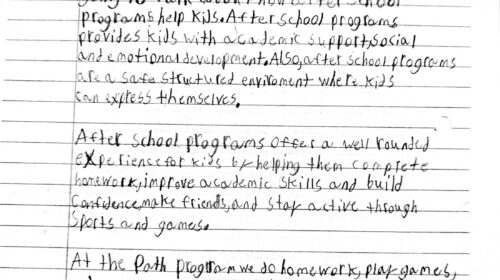 going to talk about how after school
programs help kids. After school programs
provides kids with academic support, social
and emotional development. Also, after school programs
are a safe structured enviroment where kids
can express themselves.
After school programs offer a well rounded
experience for kids by helping them complete
homework, improve academic skills and build
confidence, make friends, and stay active through
sports and games.
At the Path program we do homework, play games,